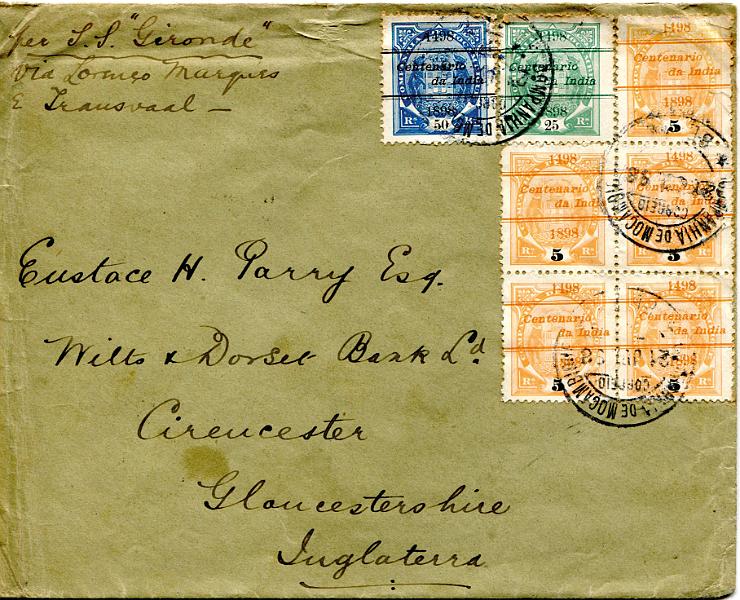 per S.S. "Gironde"
via Lorenço Marques
E Transvaal —
1498
Centenario
da India
1898
50
Rs
1498
Centenario
da India
898
25
Rs
1498
Centenario
da India
1898
5
Rs
Centenario
da India
1898
5
Rs
Centenario
da India
5
Rs
1498
Centenario
da India
5
Rs
1498
Centenario
da India
1898
5
Rs
COMPANHIA DE MOÇAMBIQUE
CORREIO
COMPANHIA DE MOÇAMBIQUE
CORREIO
Eustace H. Parry Esq.
Wilts & Dorset Bank Ld
Cirencester
Gloucestershire
Inglaterra